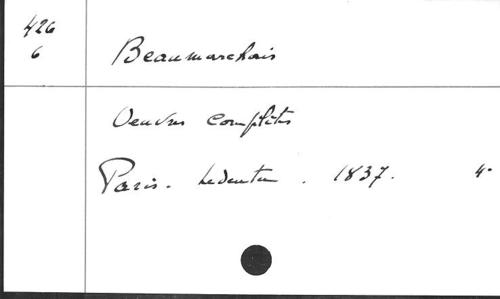 426
6
Beaumarchais
Oeuvres complètes
Paris. Ledentu. 1837. 4°